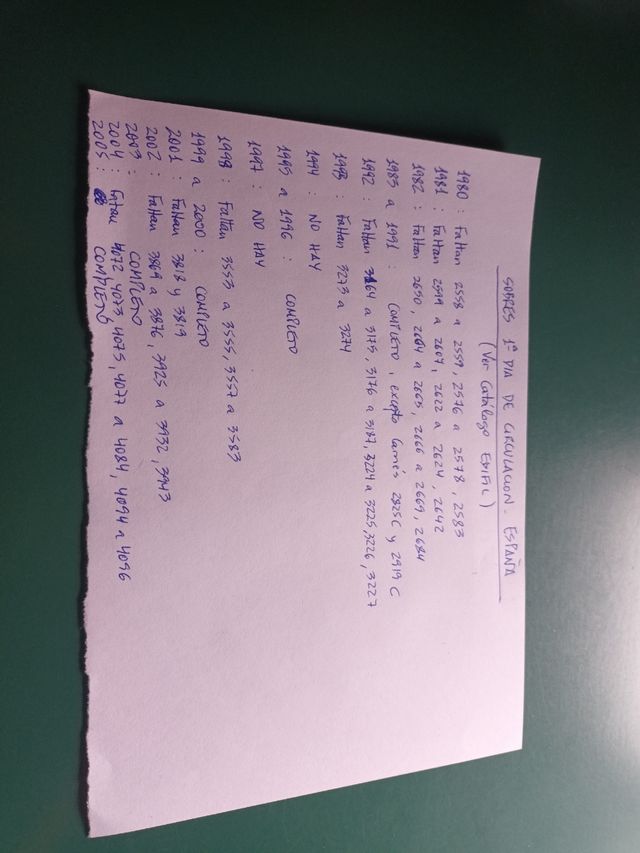 SOBRES 1º DIA DE CIRCULACION. ESPAÑA
(Ver Catálogo EDIFIL)
1980 : Faltan 2558 a 2559, 2576 a 2578, 2583
1981 : Faltan 2599 a 2607, 2622 a 2624, 2642
1982 : Faltan 2650, 2664 a 2665, 2666 a 2669, 2684
1983 a 1991 : COMPLETO, excepto Carnés 2825C y 2919 C
1992 : Faltan 3164 a 3175, 3176 a 3187, 3224 a 3225, 3226, 3227
1993 : Faltan 3273 a 3274
1994 : NO HAY
1995 a 1996 : COMPLETO
1997 : NO HAY
1998 : Faltan 3553 a 3555, 3557 a 3583
1999 a 2000 : COMPLETO
2001 : Faltan 3818 y 3819
2002 : Faltan 3869 a 3876, 3925 a 3932, 3943
2003 : COMPLETO
2004 : 4072, 4073, 4075, 4077 a 4084, 4094 a 4096
2005 : COMPLETO